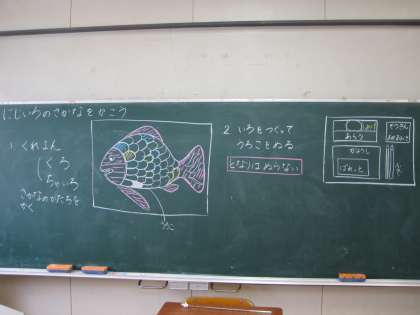 にじいろのさかなをかこう
1. くれよん
くろ
ちゃいろ
さかなのかたちを
かく
2. いろをつくって
うろこをぬる
となりはぬらない
あらう
がようし
ぱれっと